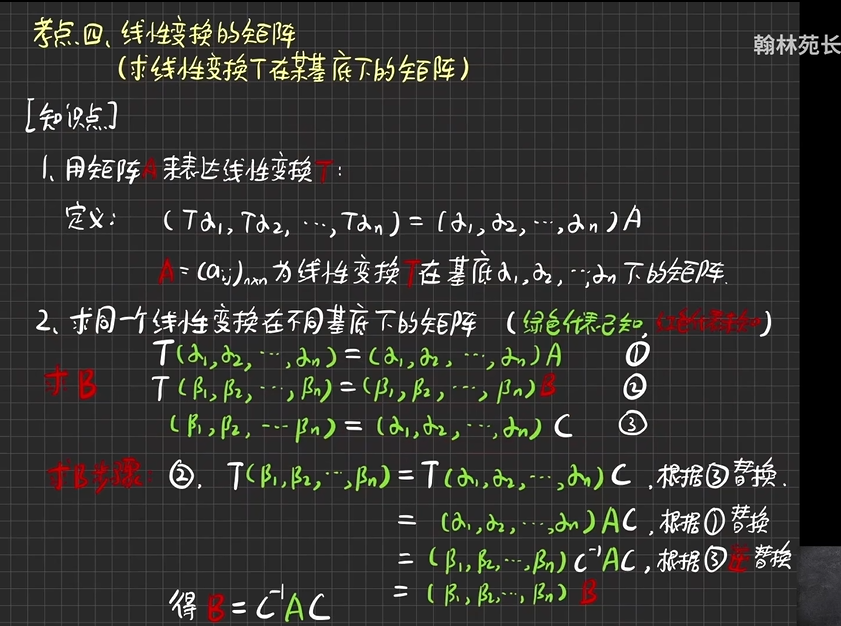 考点四、线性变换的矩阵
翰林苑长
(求线性变换T在某基底下的矩阵)
[知识点]
1、用矩阵A来表达线性变换T:
定义: (Tα₁,Tα₂,⋯,Tαₙ)=(α₁,α₂,⋯,αₙ)A
A=(aᵢⱼ)ₙₓₙ为线性变换T在基底α₁,α₂,⋯,αₙ下的矩阵.
2、求同一个线性变换在不同基底下的矩阵 (绿色代表已知,红色代表未知)
T(α₁,α₂,⋯,αₙ)=(α₁,α₂,⋯,αₙ)A ①
求B T(β₁,β₂,⋯,βₙ)=(β₁,β₂,⋯,βₙ)B ②
(β₁,β₂,⋯βₙ)=(α₁,α₂,⋯,αₙ)C ③
求B步骤: ②, T(β₁,β₂,⋯,βₙ)=T(α₁,α₂,⋯,αₙ)C ,根据③替换.
=(α₁,α₂,⋯,αₙ)AC ,根据①替换
=(β₁,β₂,⋯,βₙ)C⁻¹AC,根据③逆替换
=(β₁,β₂,⋯,βₙ)B
得B=C⁻¹AC